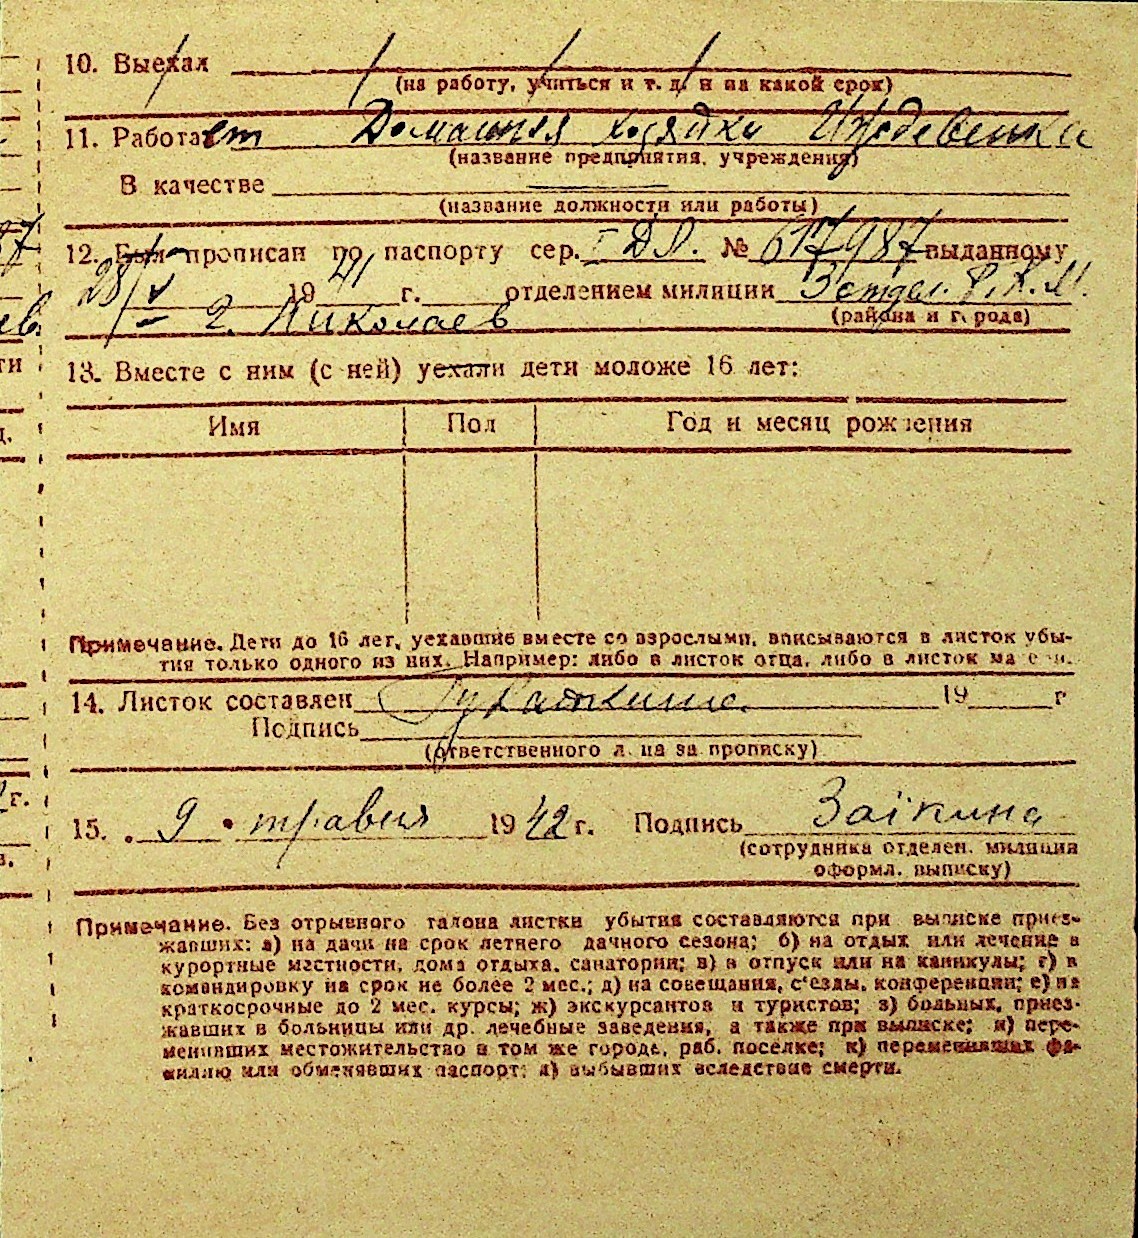 10. Выехал
(на работу, учиться и т. д. и на какой срок)
11. Работает Домашняя хозяйка
(название предприятия, учреждения)
В качестве
(название должности или работы)
12. Был прописан по паспорту сер. I ДЛ. № 617987 выданному
28/V 1941 г. отделением милиции 3 отдел. Р. К. М.
г. Николаев (района и города)
13. Вместе с ним (с ней) уехали дети моложе 16 лет:
Имя Пол Год и месяц рождения
Примечание. Дети до 16 лет, уехавшие вместе со взрослыми, вписываются в листок убы-
тия только одного из них. Например: либо в листок отца, либо в листок матери.
14. Листок составлен 19 г
Подпись
(ответственного лица за прописку)
15. „ 9 " травня 1942 г. Подпись Заікина
(сотрудника отделен. милиции
оформл. выписку)
Примечание. Без отрывного талона листки убытия составляются при выписке приез-
жавших: а) на дачи на срок летнего дачного сезона; б) на отдых или лечение в
курортные местности, дома отдыха, санатории; в) в отпуск или на каникулы; г) в
командировку на срок не более 2 мес.; д) на совещания, с'езды, конференции; е) на
краткосрочные до 2 мес. курсы; ж) экскурсантов и туристов; з) больных, приез-
жавших в больницы или др. лечебные заведения, а также при выписке; и) пере-
менивших местожительство в том же городе, раб. поселке; к) переменивших фа-
милию или обменявших паспорт; л) выбывших вследствие смерти.